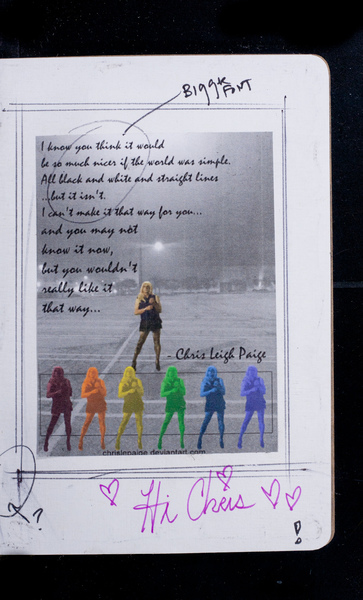 BIGGER
FONT
I know you think it would
be so much nicer if the world was simple.
All black and white and straight lines
...but it isn't.
I can't make it that way for you...
and you may not
know it now,
but you wouldn't
really like it
that way...
- Chris Leigh Paige
chrislpaige.deviantart.com
Hi Chris
? ?
!